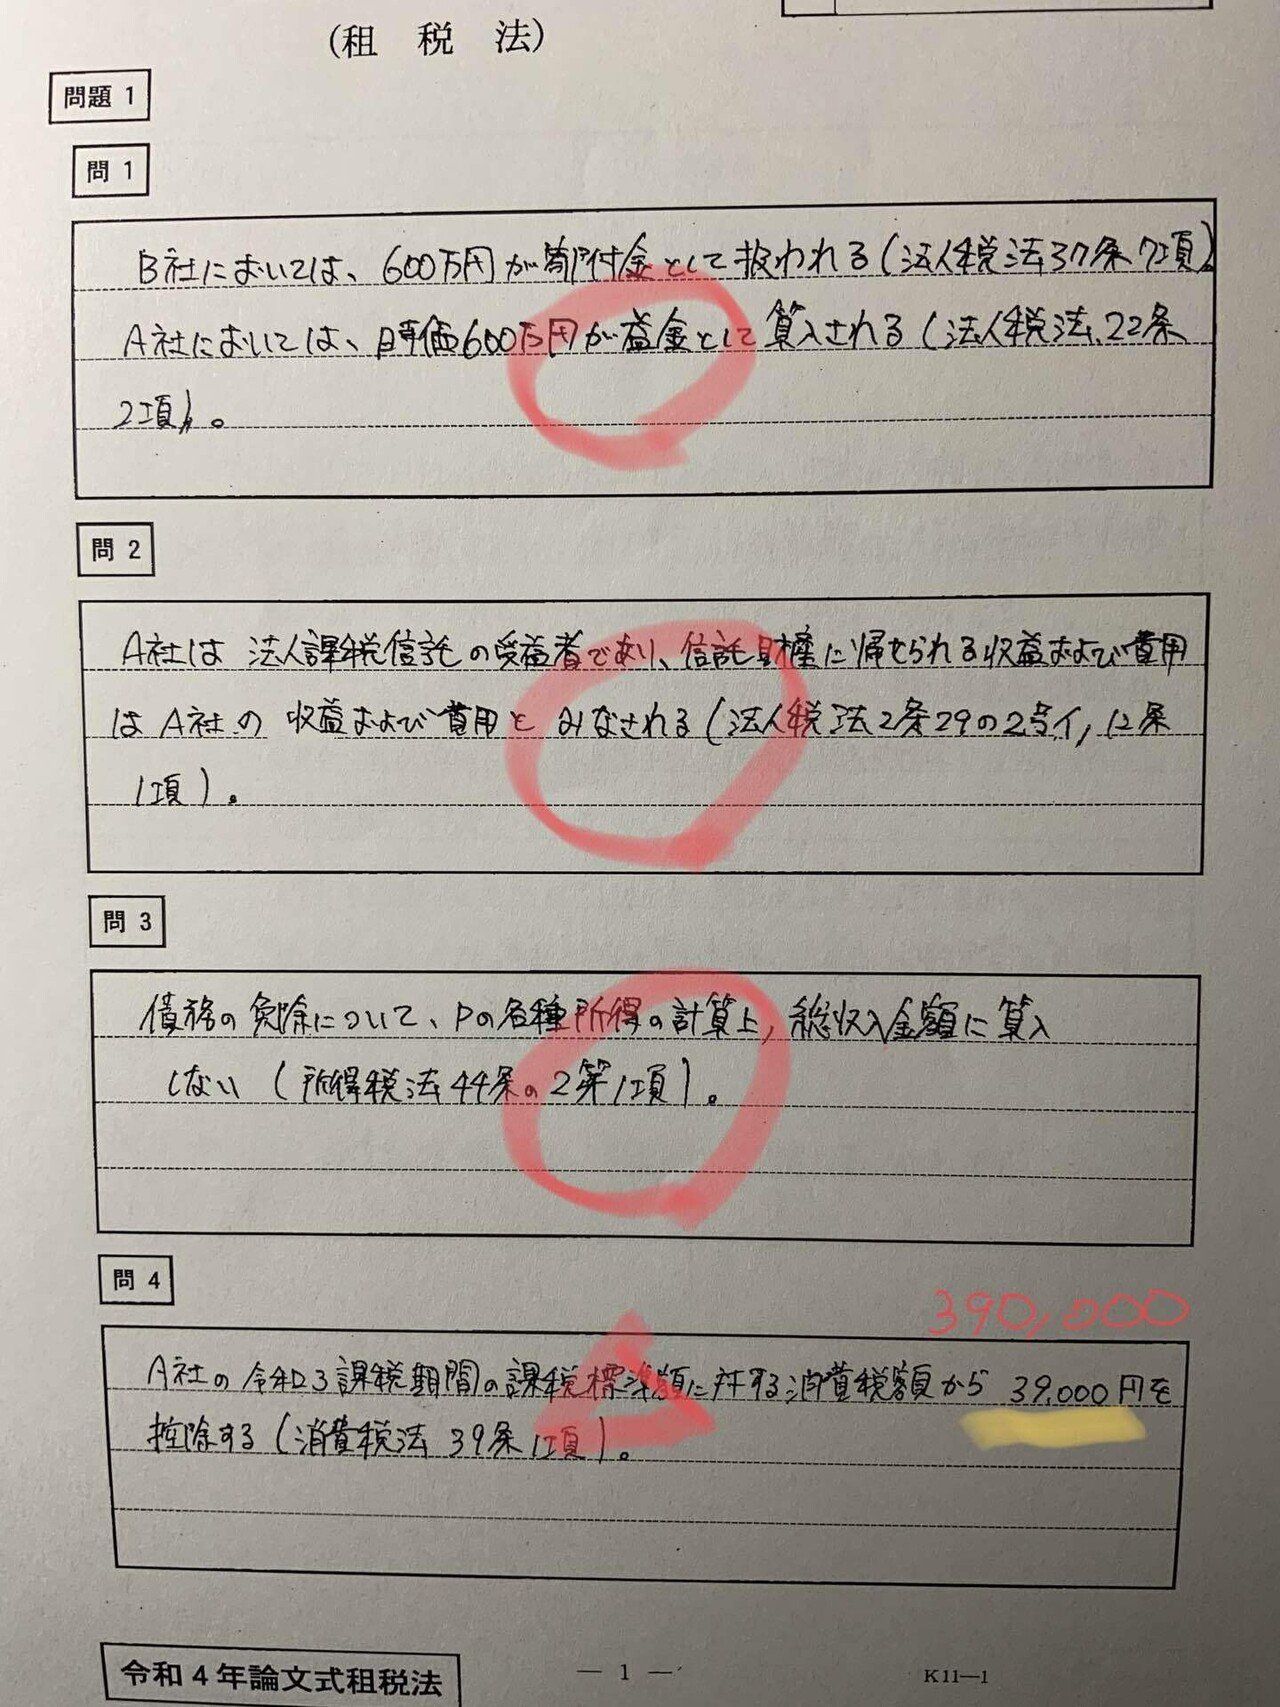 (租 税 法)
問題 1
問 1
B社においては、600万円が寄附金として扱われる(法人税法37条7項)。
A社においては、時価600万円が益金として算入される(法人税法22条
2項)。
問 2
A社は 法人課税信託の受益者であり、信託財産に帰せられる収益および費用
は A社の 収益および費用と みなされる(法人税法2条29の2号イ, 12条
1項)。
問 3
債務の免除について、Pの各種所得の計算上, 総収入金額に算入
しない (所得税法44条の2第1項)。
問 4
390,000
A社の令和3課税期間の課税標準額に対する消費税額から 39,000円を
控除する(消費税法 39条1項)。
令和4年論文式租税法
— 1 —
K11—1